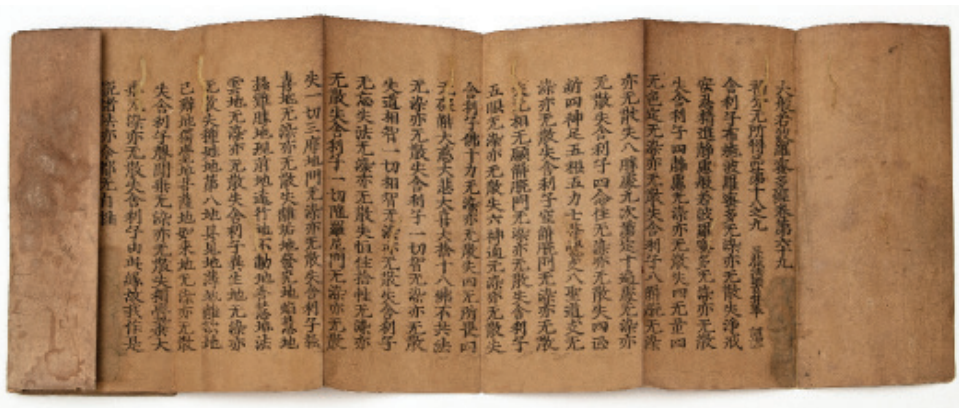 大般若波羅蜜多經卷第六十九
初分无所得品第十八之九 三藏法師玄奘奉 詔譯
舍利子布施波羅蜜多无染亦无散失淨戒
安忍精進靜慮般若波羅蜜多无染亦无散
失舍利子四靜慮无染亦无散失四无量四
无色定无染亦无散失舍利子八解脫无染
亦无散失八勝處九次第定十遍處无染亦
无散失舍利子四念住无染亦无散失四正
斷四神足五根五力七等覺支八聖道支无
染亦无散失舍利子空解脫門无染亦无散
失无相无願解脫門无染亦无散失舍利子
五眼无染亦无散失六神通无染亦无散失
舍利子佛十力无染亦无散失四无所畏四
无礙解大慈大悲大喜大捨十八佛不共法
无染亦无散失舍利子一切智无染亦无散
失道相智一切相智无染亦无散失舍利子
无忘失法无染亦无散失恒住捨性无染亦
无散失舍利子一切陀羅尼門无染亦无散
失一切三摩地門无染亦无散失舍利子極
喜地无染亦无散失離垢地發光地焰慧地
極難勝地現前地遠行地不動地善慧地法
雲地无染亦无散失舍利子異生地无染亦
无散失種姓地第八地具見地薄地離欲地
已辦地獨覺地菩薩地如來地无染亦无散
失舍利子聲聞乘无染亦无散失獨覺乘大
乘无染亦无散失舍利子由此緣故我作是
說諸法亦尔都无自性